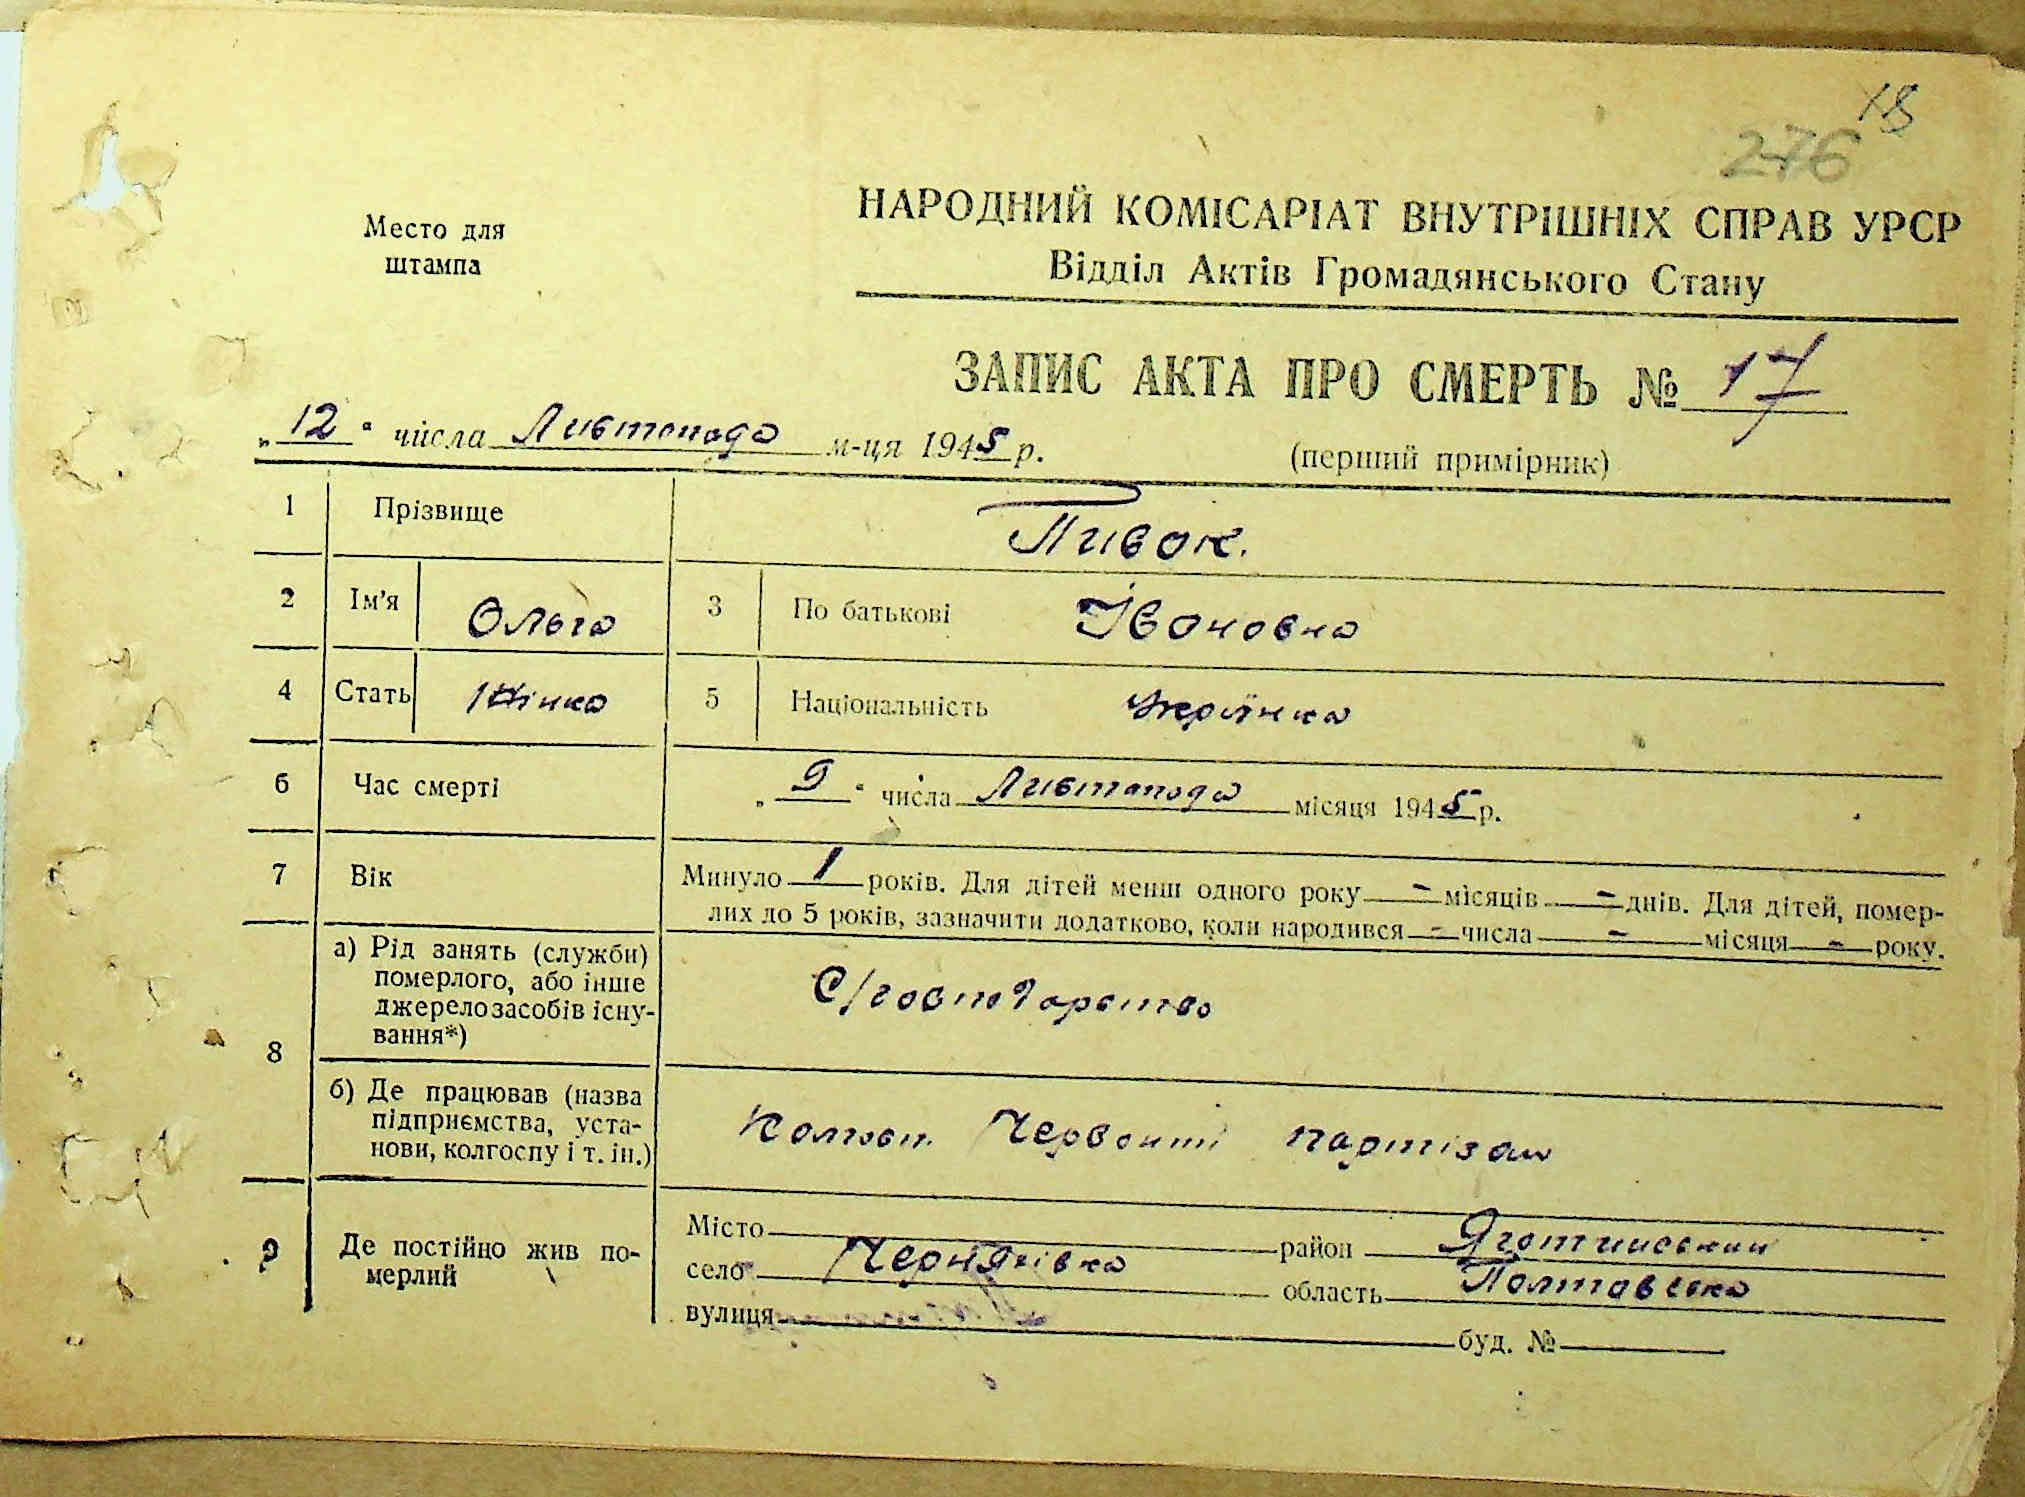 18
276
Место для
штампа
НАРОДНИЙ КОМІСАРІАТ ВНУТРІШНІХ СПРАВ УРСР
Відділ Актів Громадянського Стану
ЗАПИС АКТА ПРО СМЕРТЬ № 17
„12“ числа Листопада м-ця 1945 р.
(перший примірник)
1 Прізвище Пивок.
2 Ім'я Ольга 3 По батькові Івановна
4 Стать Жінка 5 Національність Украінка
6 Час смерті „9“ числа Листопада місяця 1945 р.
7 Вік Минуло 1 років. Для дітей менш одного року - місяців - днів. Для дітей, помер-
лих до 5 років, зазначити додатково, коли народився - числа - місяця - року.
8 а) Рід занять (служби)
померлого, або інше
джерело засобів існу-
вання*)
С/господарство
б) Де працював (назва
підприємства, уста-
нови, колгоспу і т. ін.)
Колгосп Червоний партізан
9 Де постійно жив по-
мерлий
Місто район Яготинський
село Черняхівка область Полтавська
вулиця буд. №